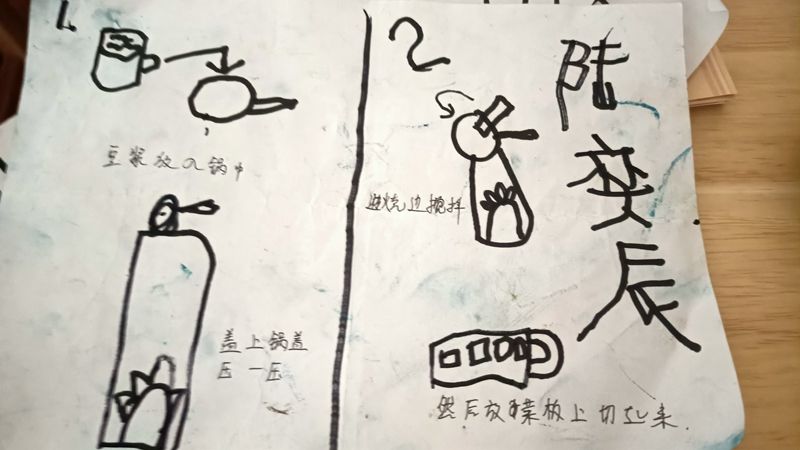 1.
豆浆放入锅中
盖上锅盖
压一压
2
边烧边搅拌
然后放菜板上切起来.
陆奕辰